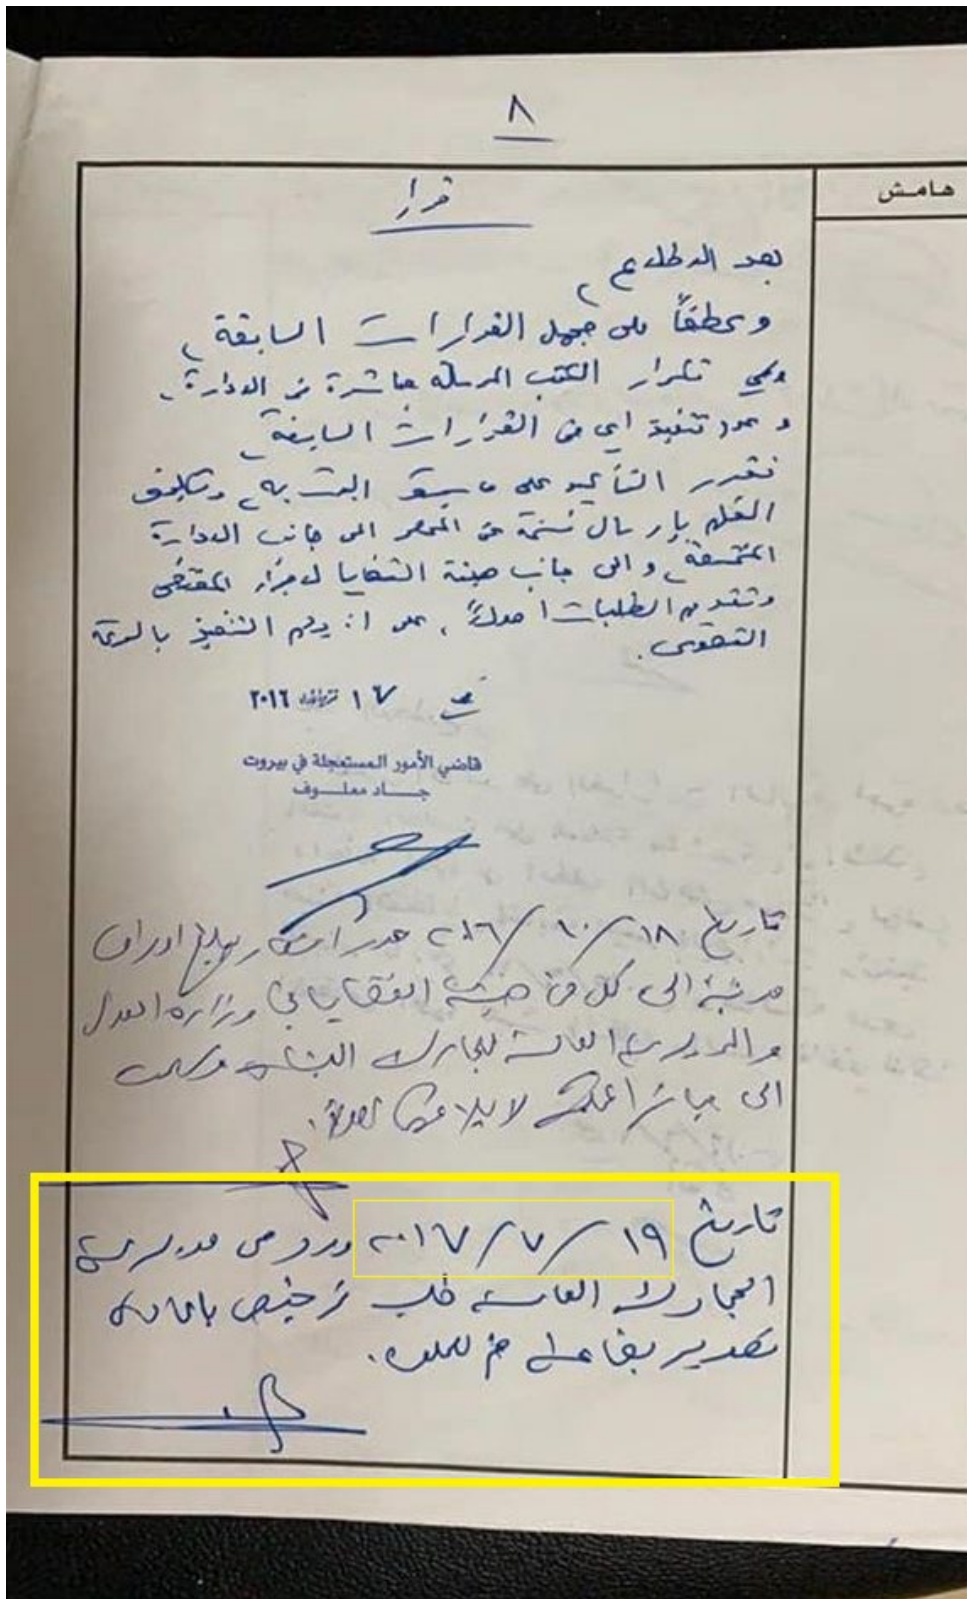 ٨
هامش
قرار
بعد الاطلاع،
وعطفاً على مجمل القرارات السابقة،
وعلى تكرار الكتب المرسلة مباشرة من الادارة،
وعدم تنفيذ اي من القرارات السابقة،
نقرر التأكيد على ما سبق البت به، وتكليف
القلم بإرسال نسخة عن المحضر الى جانب الادارة
المختصة، والى جانب هيئة القضايا لإجراء المقتضى
وتقديم الطلبات اصولاً، على ان يتم التنفيذ بالسرعة
القصوى.
في ١٧ تشرين الاول ٢٠١٦
قاضي الأمور المستعجلة في بيروت
جاد معلوف
تاريخ ١٨/١٠/٢٠١٦ اوراق
الى كل من هيئة القضايا في وزارة العدل
والمديرية العامة للجمارك اللبنانية وسلمت
الى مباشر المحكمة لابلاغها اصولا.
تاريخ ١٩/٧/٢٠١٧ ورد من مديرية
الجمارك العامة طلب ترخيص باعادة
تصدير بضاعة ضم للملف.